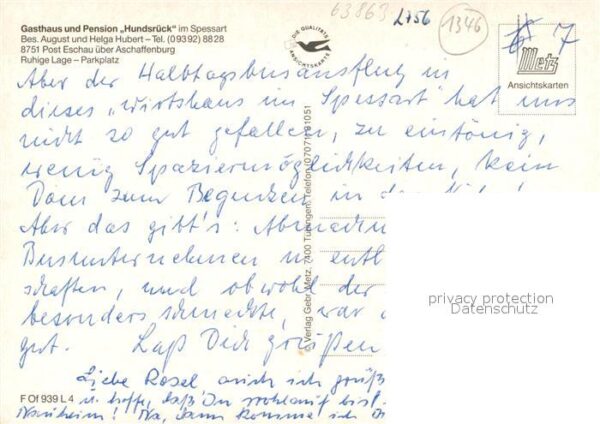 Gasthaus und Pension „Hundsrück" im Spessart
Bes. August und Helga Hubert – Tel. (09392) 8828
8751 Post Eschau über Aschaffenburg
Ruhige Lage – Parkplatz
63863
L756
1346
7
DIE QUALITÄTS ANSICHTSKARTE
Metz
Ansichtskarten
Aber der Halbtagsbusausflug in
dieses „Wirtshaus im Spessart" hat uns
nicht so gut gefallen, zu eintönig,
wenig Spaziermöglichkeiten, kein
Dom zum Begucken in der
Aber das gibt's:
Busunternehmen
schaften, und obwohl der
besonders schmeckte, war
gut. Laß Dich grüßen
© Verlag Gebr. Metz, 7400 Tübingen, Telefon (07071) 91051
privacy protection
Datenschutz
Liebe Rosel auch ich grüß
u. hoffe, daß Du wohlauf bist.
Nauheim! Na, dann komme ich
F Of 939 L 4